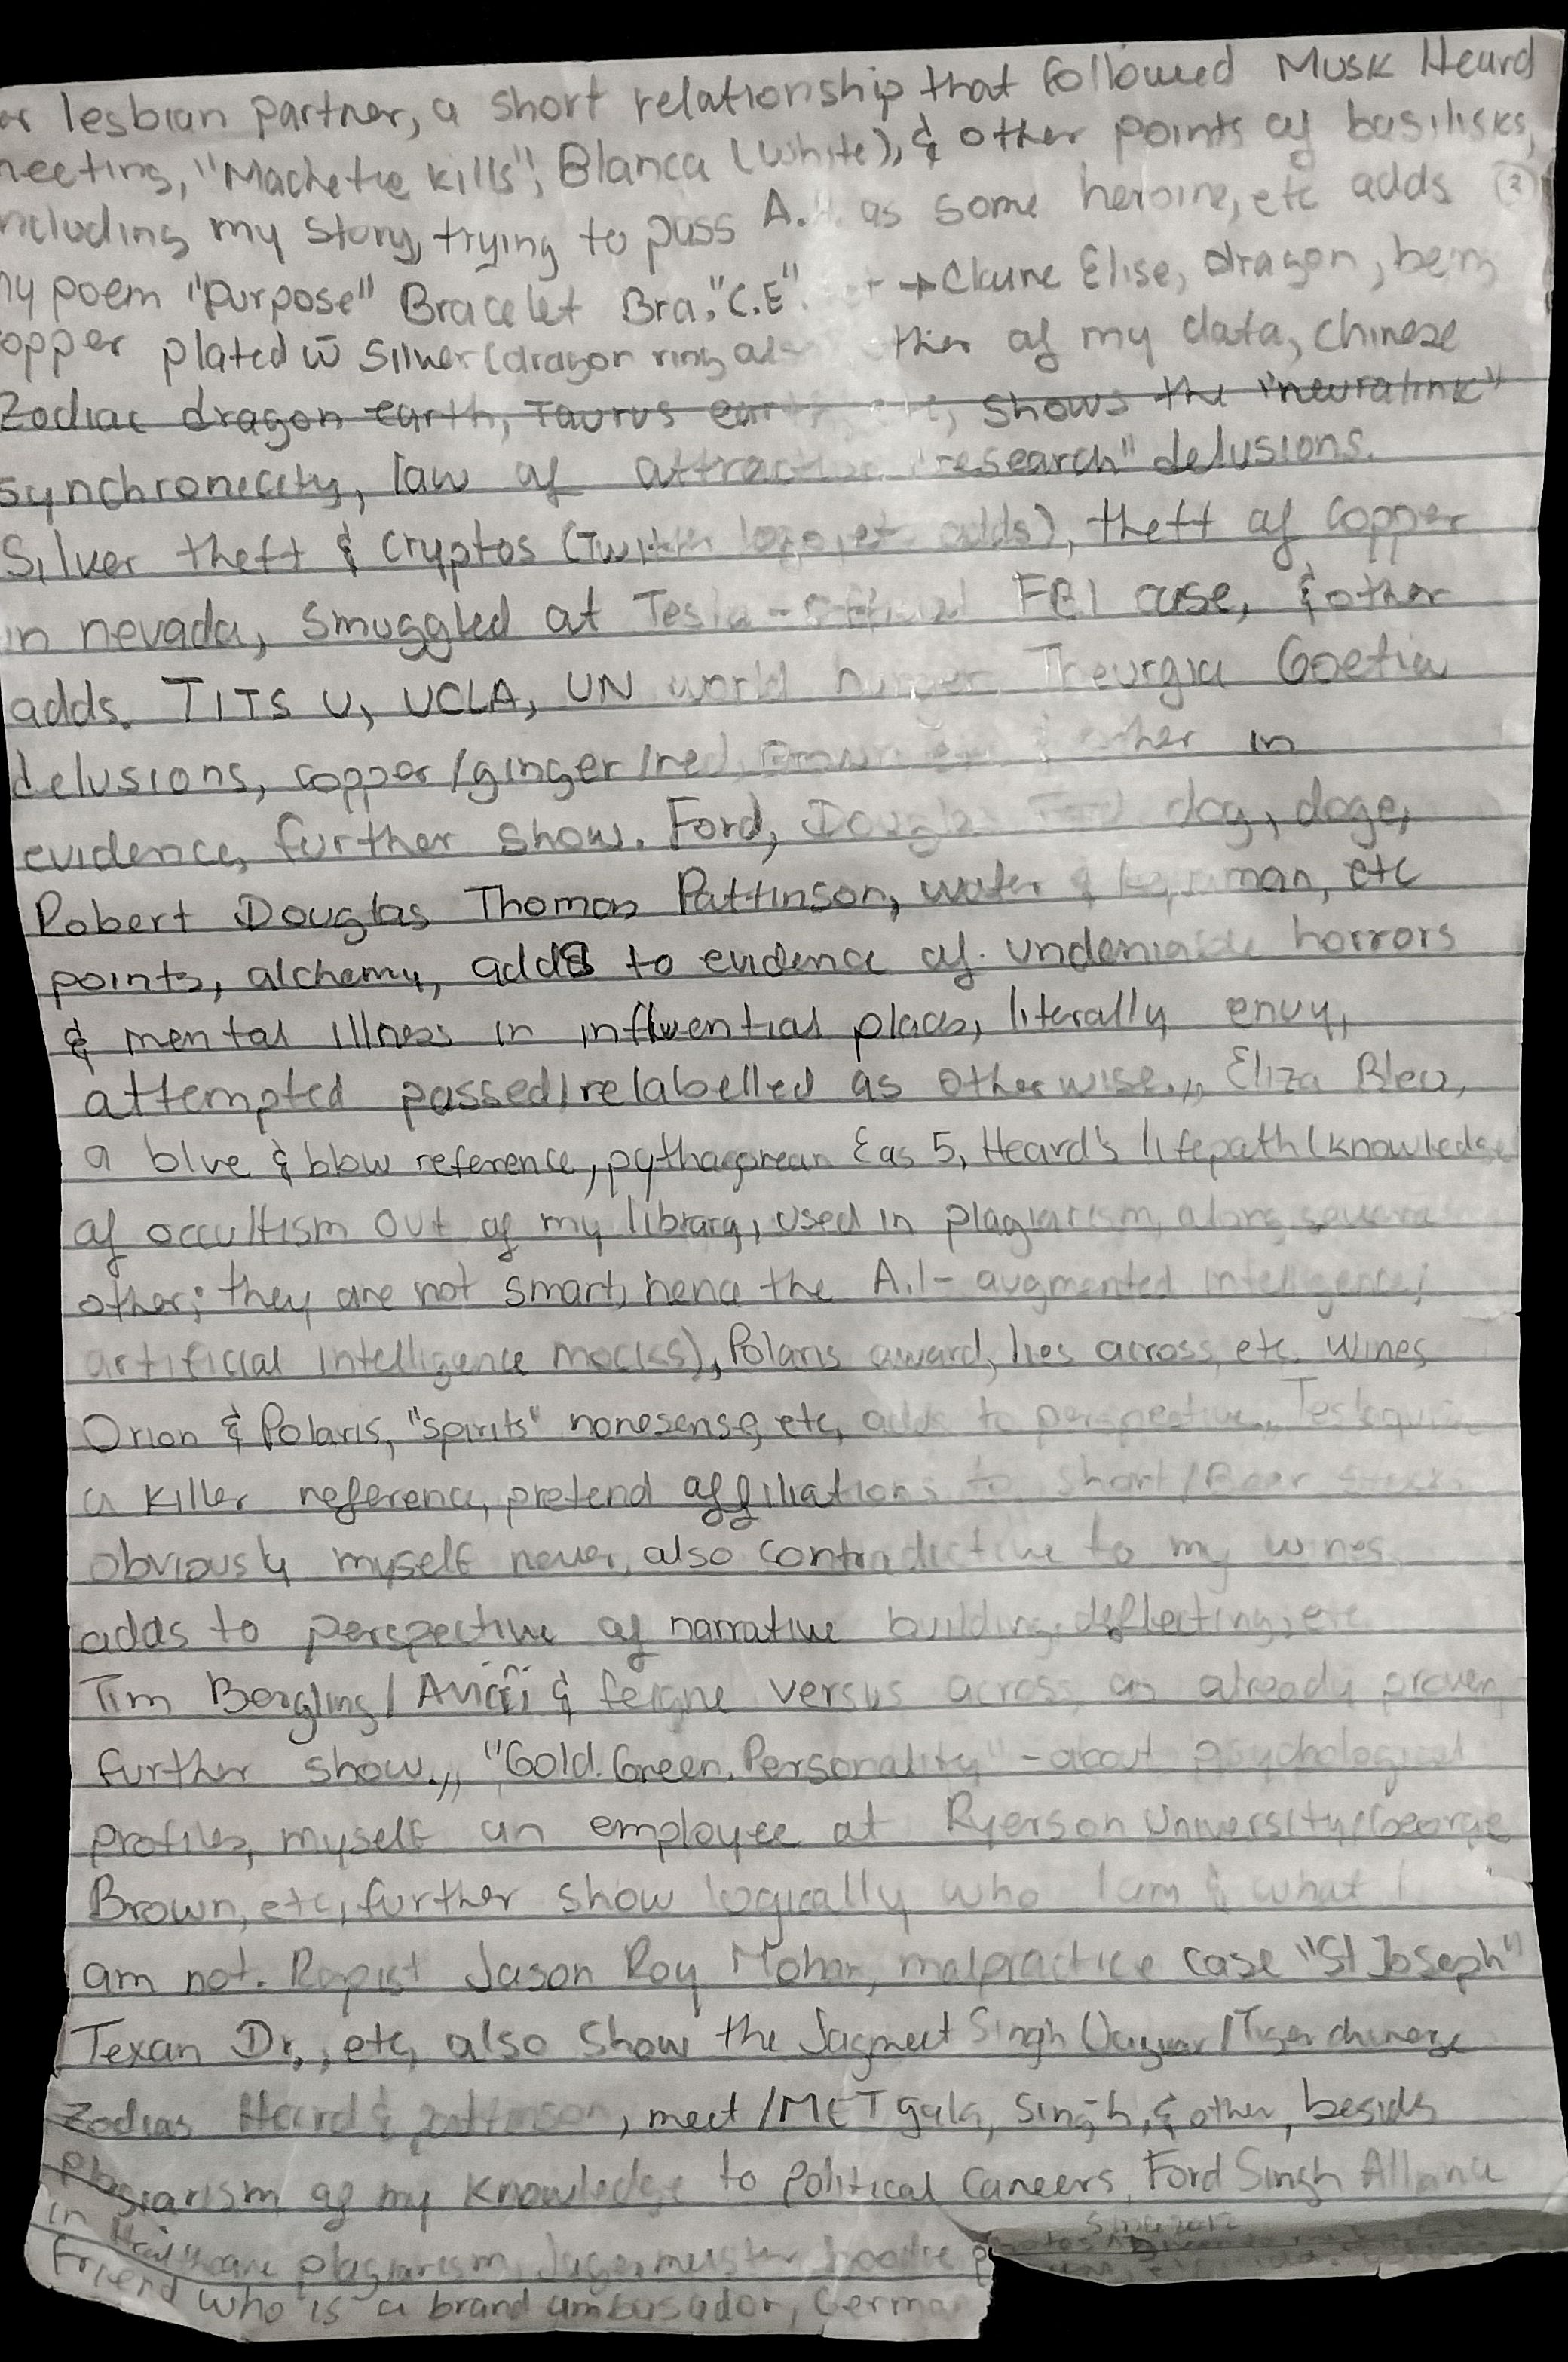 lesbian partner, a short relationship that followed Musk Heard
"Machette kills", Blanca (White), & other points of basilisks,
my story, trying to pass A. as some heroine, etc adds
poem "purpose" Bracelet Bra."C.E". Claire Elise, dragon, being
plated w̄ Silver (dragon ring of my data, chinese
Zodiac dragon earth, Taurus shows the "neuralink"
synchronicity, law of "research" delusions.
Silver theft & cryptos (Twitter logo, adds), theft of copper
in nevada, smuggled at Tesla - official FBI case, & other
adds. TITS U, UCLA, UN world hunger Theurgia Goetia
delusions, copper/ginger/red, in
evidence, further show. Ford, dog, doge,
Robert Douglas Thomas Pattinson, water & man, etc
points, alchemy, adds to evidence of undeniable horrors
& mental illness in influential places, literally envy,
attempted passed/relabelled as otherwise.,, Eliza Bleu,
a blue & blow reference, pythagorean E as 5, Heard's lifepath (knowledge
of occultism out of my library, used in plagiarism, along
other; they are not smart, hence the A.I - augmented intelligence;
artificial intelligence mocks), Polaris award, lies across, etc. Wines
Orion & Polaris, "spirits" nonesense, etc, adds to perspective.,
a killer reference, pretend affiliations to short/Bear
obviously myself never, also contradictive to my wines,
adds to perspective of narrative building, deflecting, etc
Tim Bergling / Avicii & feigne versus across, as already proven,
further show.,, "Gold.Green.Personality" - about psychological
profiles, myself an employee at Ryerson University/George
Brown, etc, further show logically who I am & what I
am not. Rapist Jason Roy malpractice case "St Joseph"
Texan Dr., etc, also show the Jagmeet Singh (Jaguar/Tiger chinese
Zodiac Heard & pattinson, meet/MET gala, Singh, & other, besides
plagiarism of my knowledge to political careers, Ford Singh Alliance
in plagiarism, Jagermeister hoodie
friend who is a brand ambassador, German